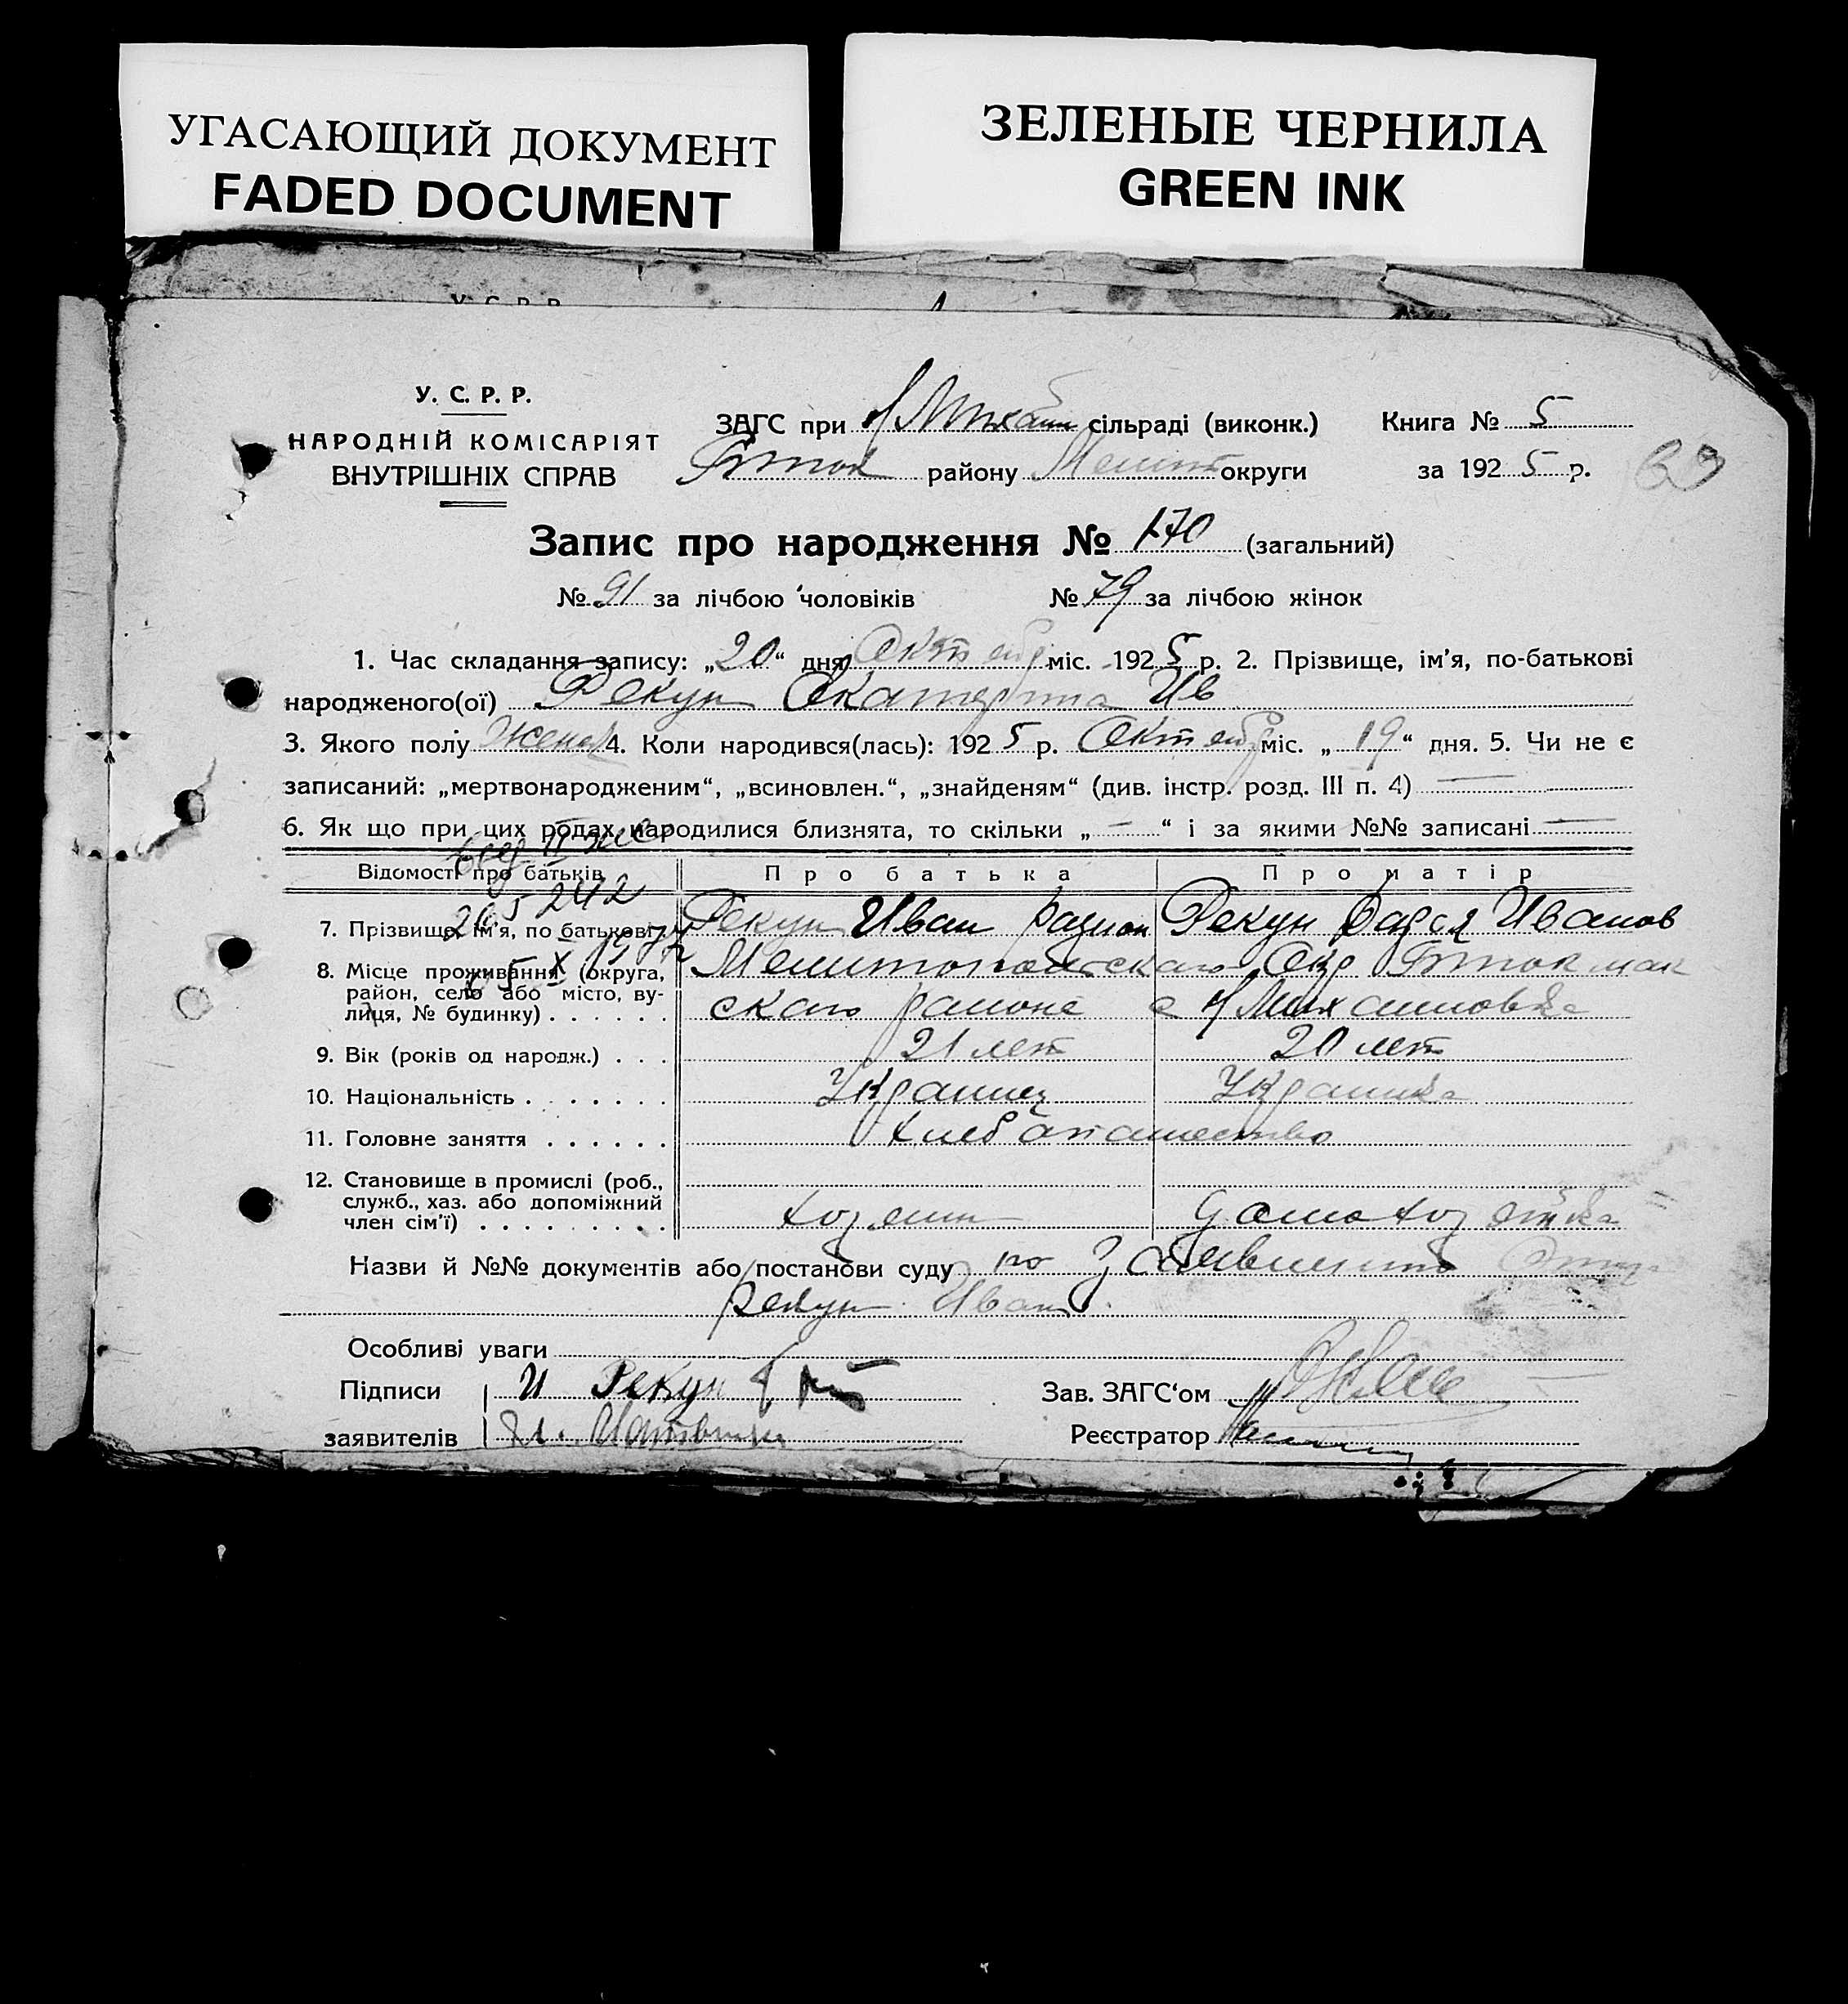 УГАСАЮЩИЙ ДОКУМЕНТ
FADED DOCUMENT
ЗЕЛЕНЫЕ ЧЕРНИЛА
GREEN INK
У. С. Р. Р.
НАРОДНІЙ КОМІСАРІЯТ
ВНУТРІШНІХ СПРАВ
ЗАГС при Н Михайл сільраді (виконк.)
Бток району Мелит округи
Книга № 5
за 1925 р.
69
Запис про народження № 170 (загальний)
№ 91 за лічбою чоловіків № 79 за лічбою жінок
1. Час складання запису: „20“ дня Октября міс. 1925 р. 2. Прізвище, ім’я, по-батькові
народженого(ої) Рекун Екатерина Ив
3. Якого полу Женск 4. Коли народився(лась): 1925 р. Октября міс. „19“ дня. 5. Чи не є
записаний: „мертвонародженим“, „всиновлен.“, „знайденям“ (див. інстр. розд. III п. 4) —
6. Як що при цих родах народилися близнята, то скільки „—“ і за якими №№ записані —
Відомості про батьків Про батька Про матір
7. Прізвище, ім’я, по батькові Рекун Иван Радион Рекун Дарья Иванов
8. Місце проживання (округа, район, село або місто, вулиця, № будинку) . . . . . . Мелитопольскаго Окр Бтокмак
скаго району с Н Михайловка
9. Вік (років од народж.) . . . 21 лет 20 лет
10. Національність . . . . . . . Украинец Украинка
11. Головне заняття . . . . . . Хлебопашество
12. Становище в промислі (роб.,
служб., хаз. або допоміжний
член сім’ї) . . . . . . . . . хозяин домохозяйка
Назви й №№ документів або постанови суду по Заявлению Отца
Рекун Иван
Особливі уваги
Підписи И Рекун
Зав. ЗАГС‘ом
заявителів
Реєстратор